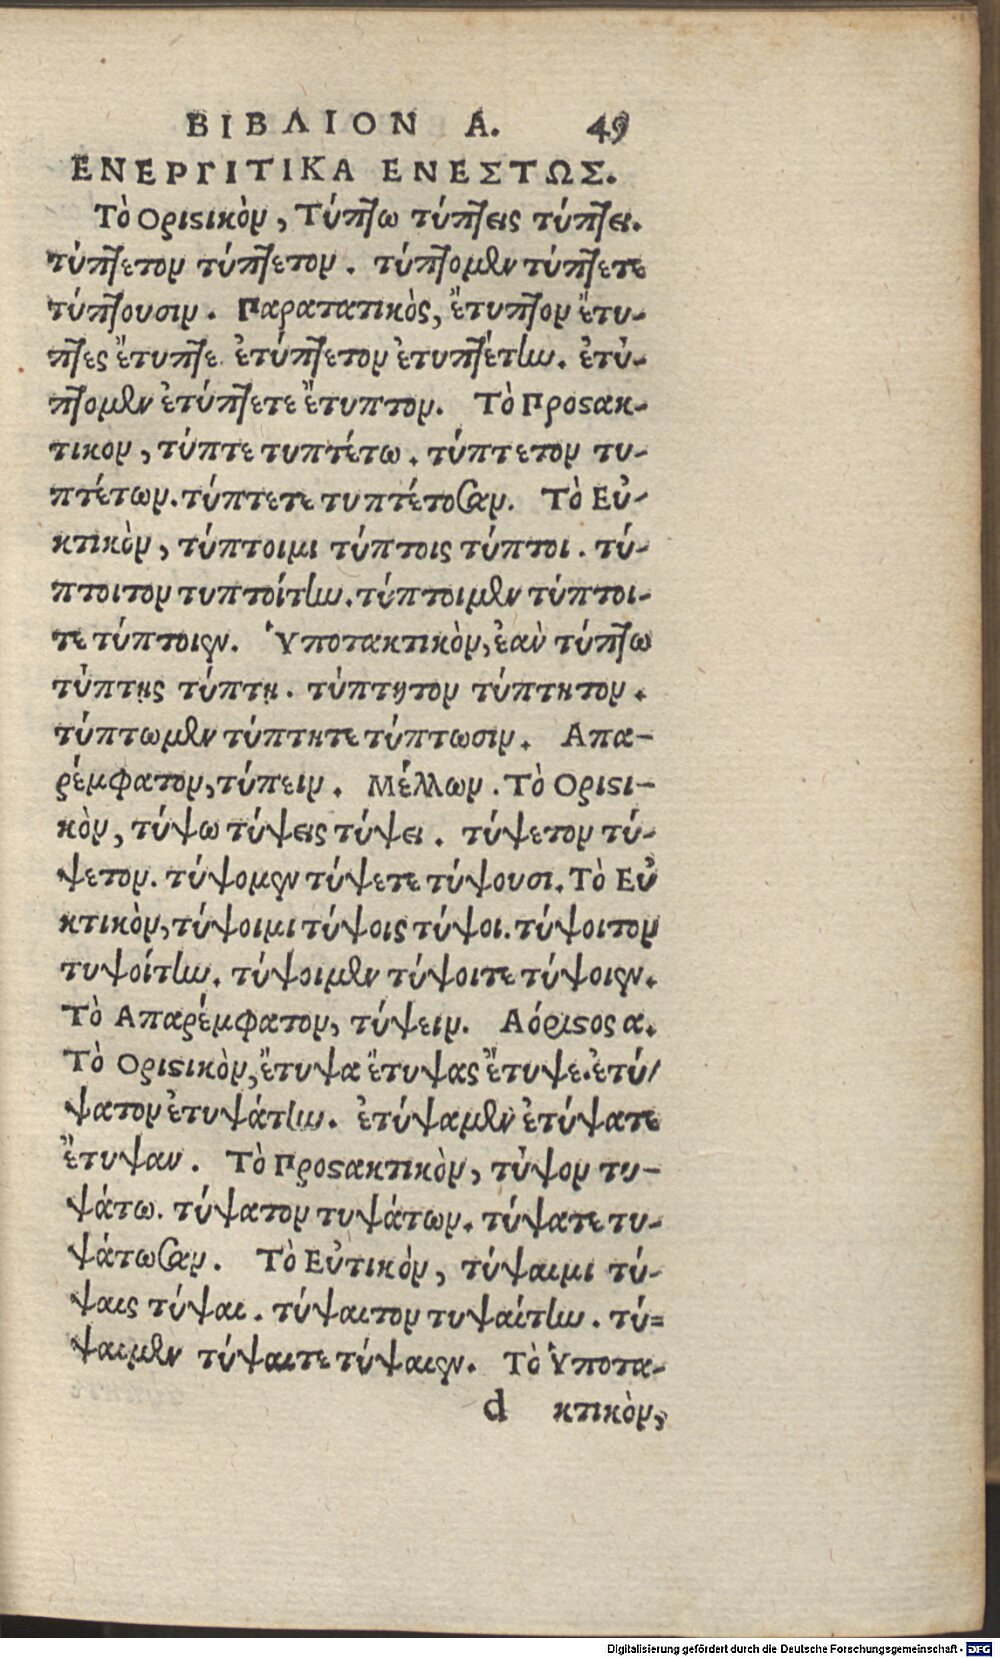 ΒΙΒΛΙΟΝ Α. 49
ΕΝΕΡΓΙΤΙΚΑ ΕΝΕΣΤΩΣ.
Τὸ Οριϛικὸν, Τύπτω τύπτεις τύπτει.
τύπτετον τύπτετον. τύπτομεν τύπτετε
τύπτουσιν. Παρατατικὸς, ἔτυπτον ἔτυ-
πτες ἔτυπτε. ἐτύπτετον ἐτυπτέτην. ἐτύ-
πτομεν ἐτύπτετε ἔτυπτον. Τὸ Προϛακ-
τικον, τύπτε τυπτέτω. τύπτετον τυ-
πτέτων. τύπτετε τυπτέτοσαν. Τὸ Εὐ-
κτικὸν, τύπτοιμι τύπτοις τύπτοι. τύ-
πτοιτον τυπτοίτην. τύπτοιμεν τύπτοι-
τε τύπτοιεν. Ὑποτακτικὸν, ἐαν τύπτω
τύπτῃς τύπτῃ. τύπτητον τύπτητον.
τύπτωμεν τύπτητε τύπτωσιν. Απα-
ρέμφατον, τύπειν. Μέλλων. Τὸ Οριϛι-
κὸν, τύψω τύψεις τύψει. τύψετον τύ-
ψετον. τύψομεν τύψετε τύψουσι. Τὸ Εὐ
κτικὸν, τύψοιμι τύψοις τύψοι. τύψοιτον
τυψοίτην. τύψοιμεν τύψοιτε τύψοιεν.
Τὸ Απαρέμφατον, τύψειν. Αόριϛος α.
Τὸ Οριϛικὸν, ἔτυψα ἔτυψας ἔτυψε. ἐτύ-
ψατον ἐτυψάτην. ἐτύψαμεν ἐτύψατε
ἔτυψαν. Τὸ Προϛακτικὸν, τύψον τυ-
ψάτω. τύψατον τυψάτων. τύψατε τυ-
ψάτωσαν. Τὸ Εὐτικὸν, τύψαιμι τύ-
ψαις τύψαι. τύψαιτον τυψαίτην. τύ-
ψαιμεν τύψαιτε τύψαιεν. Τὸ Ὑποτα-
d κτικὸν,
Digitalisierung gefördert durch die Deutsche Forschungsgemeinschaft - DFG